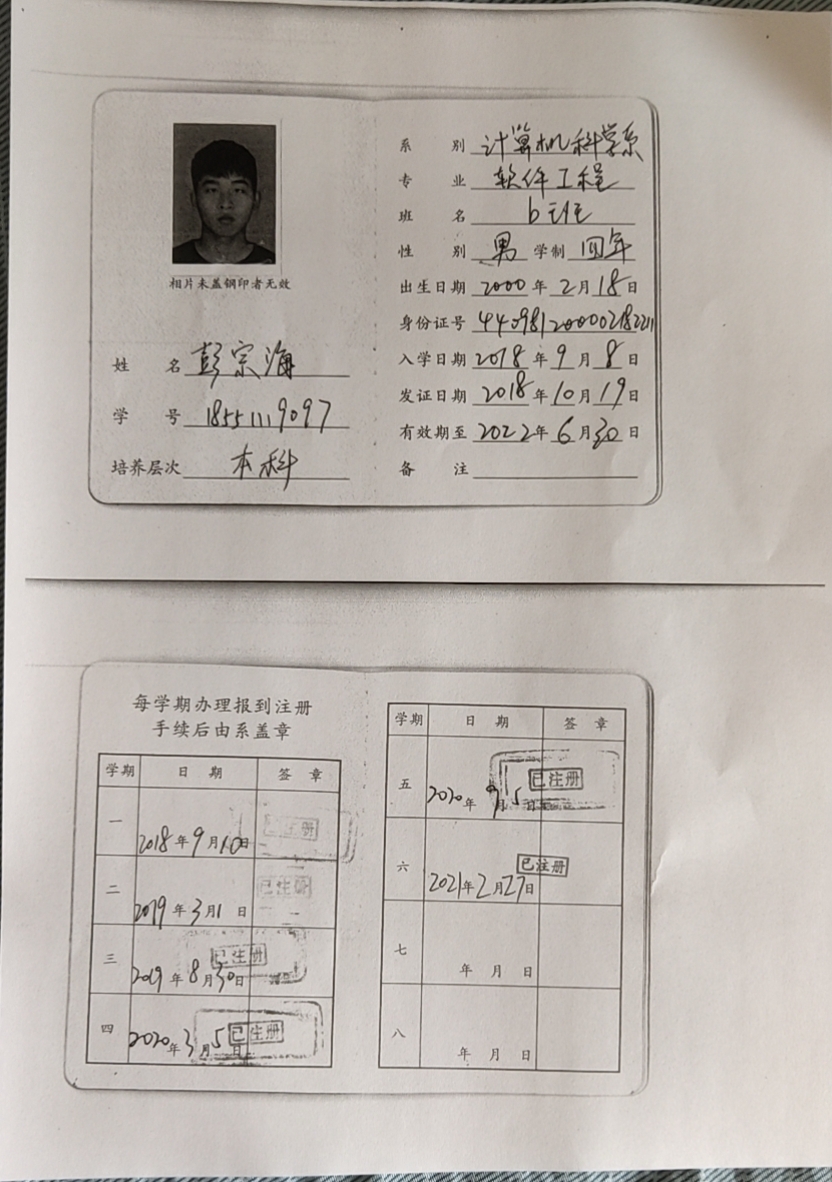 相片未盖钢印者无效
姓 名 彭宗海
学 号 18551119097
培养层次 本科
系 别 计算机科学系
专 业 软件工程
班 名
性 别 男 学制 四年
出生日期 2000 年 2 月 18 日
身份证号
入学日期 2018 年 9 月 8 日
发证日期 2018 年 10 月 19 日
有效期至 2022 年 6 月 30 日
备 注
每学期办理报到注册
手续后由系盖章
学期 日 期 签 章
一 2018 年 9 月 10 日 已注册
二 2019 年 3 月 1 日 已注册
三 2019 年 8 月 30 日 已注册
四 2020 年 3 月 5 日 已注册
学期 日 期 签 章
五 2020 年 月 5 日 已注册
六 2021 年 2 月 27 日 已注册
七 年 月 日
八 年 月 日